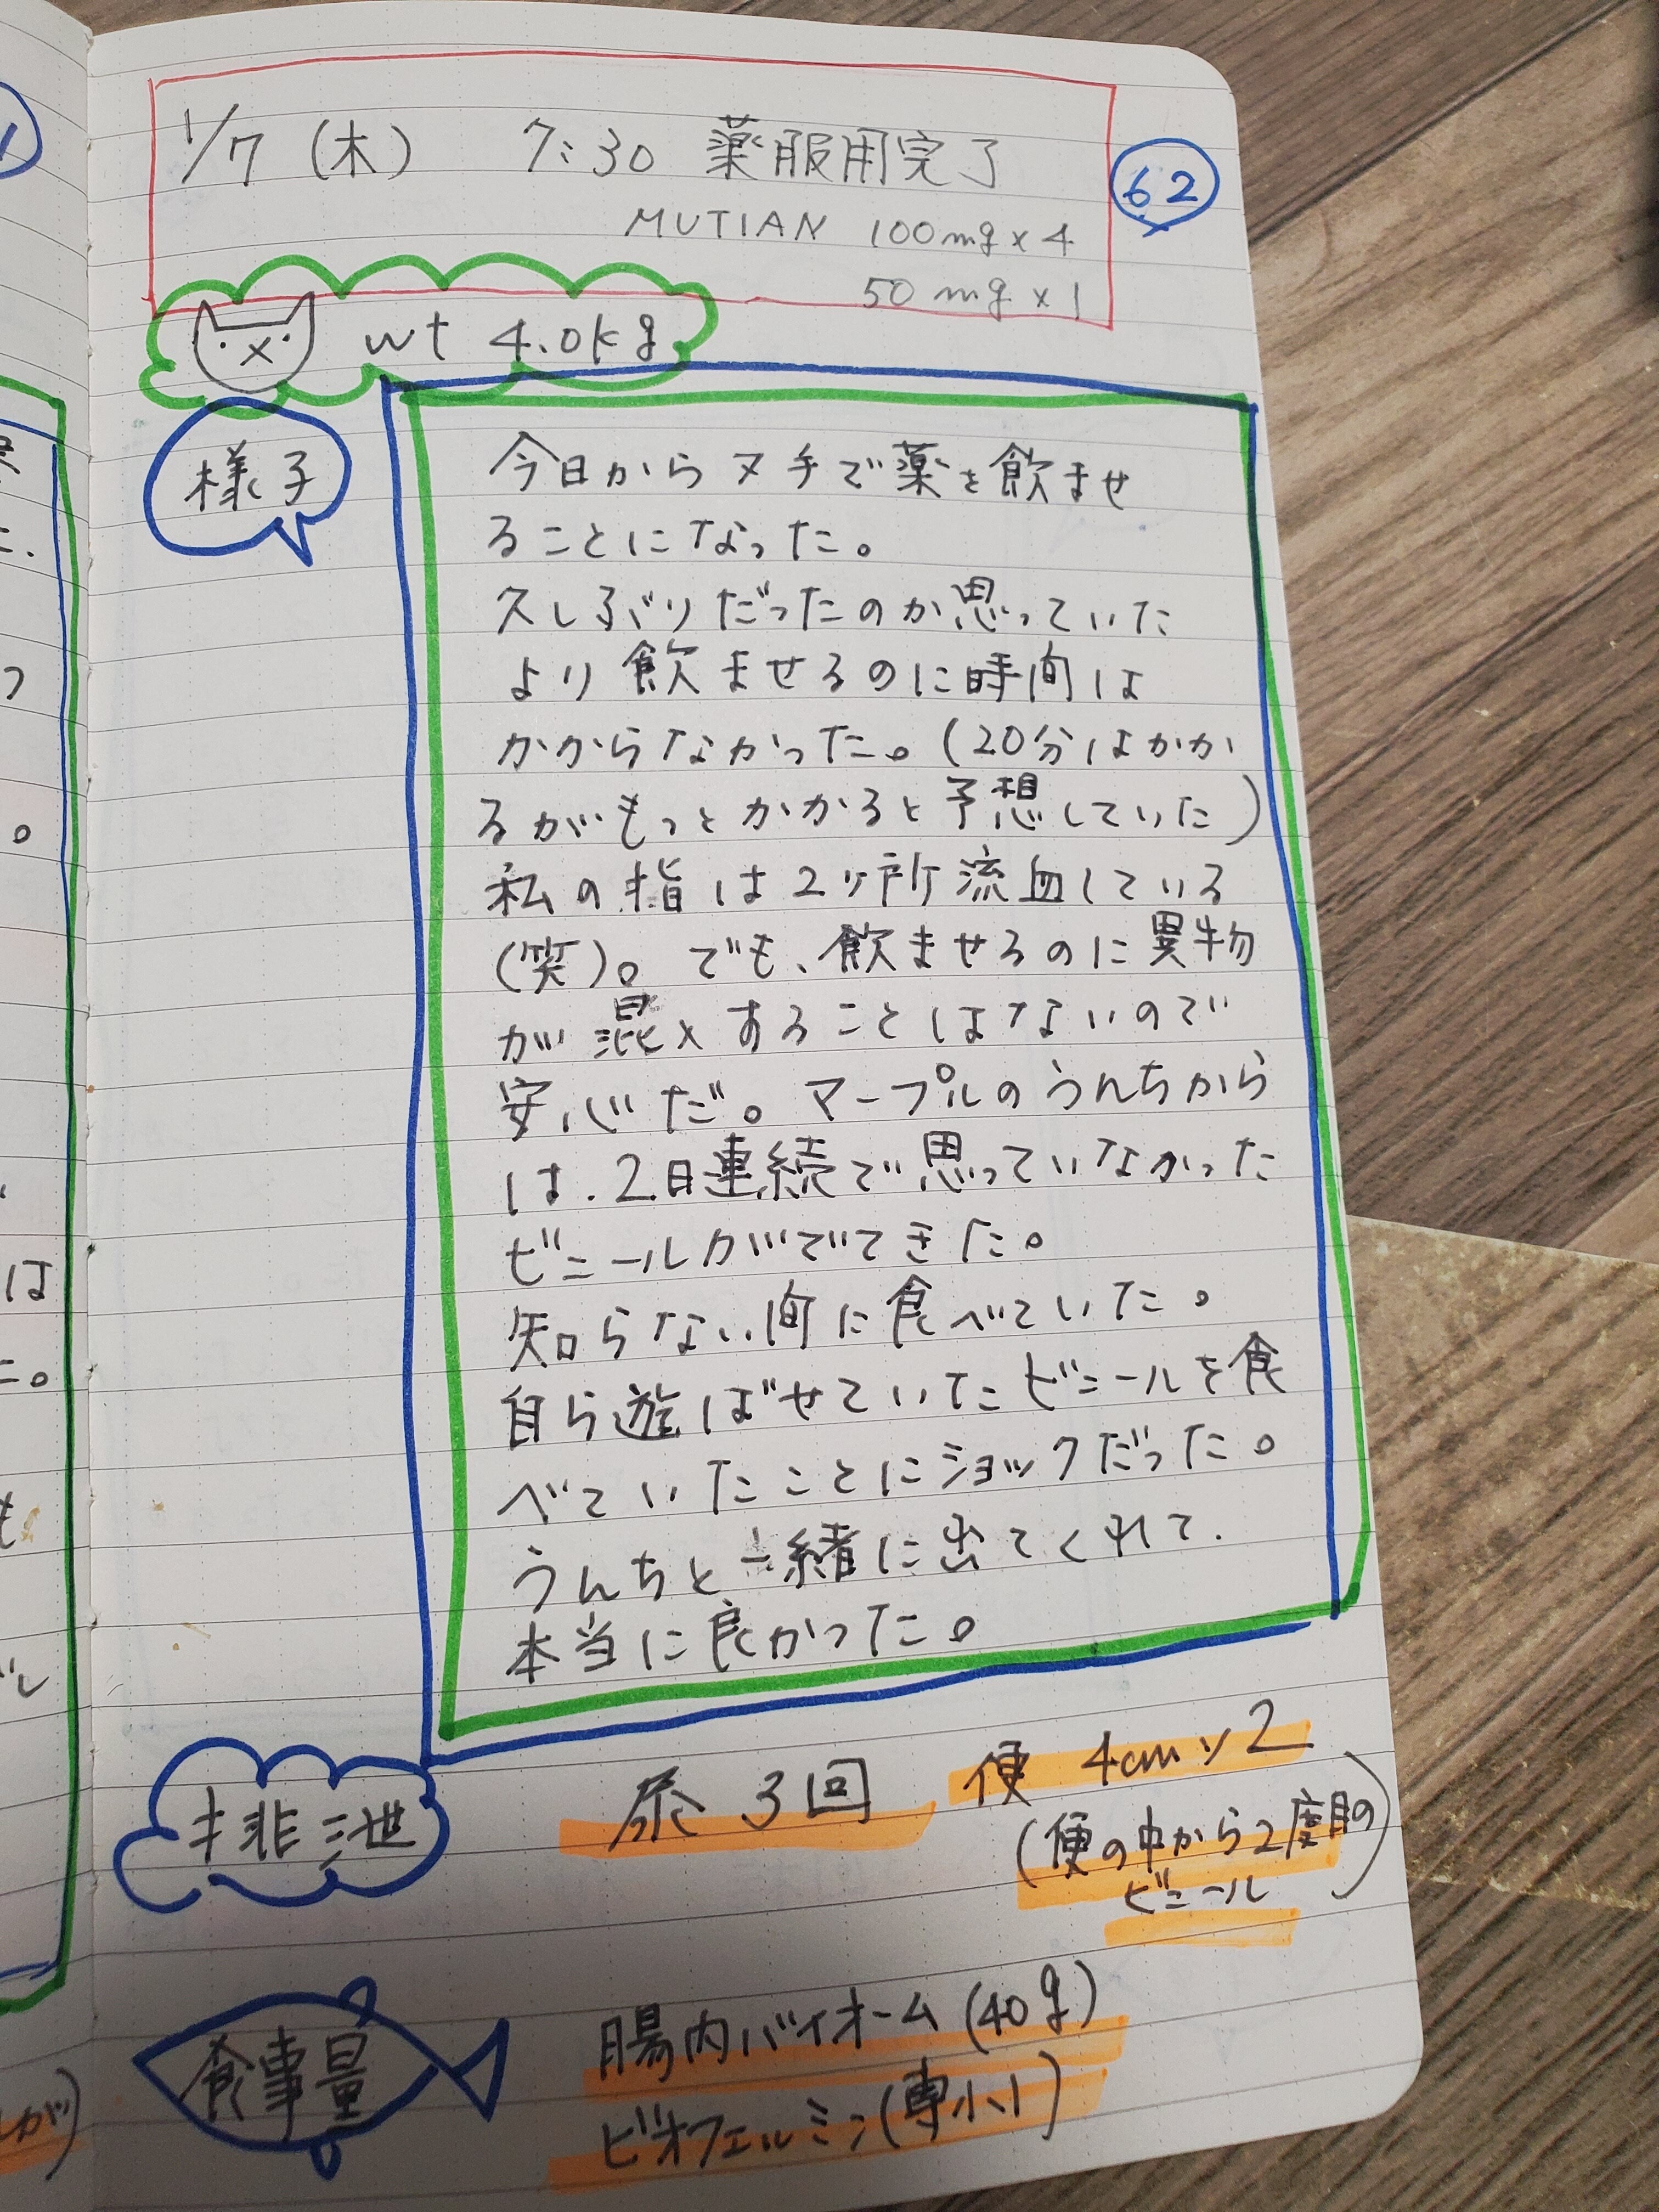 1/7 (木) 7:30 薬服用完了
62
MUTIAN 100mg×4
50mg×1
wt 4.0kg
様子
今日からヌ手で薬を飲ませ
ることになった。
久しぶりだったのか思っていた
より飲ませるのに時間は
かからなかった。(20分はかか
るがもっとかかると予想していた)
私の指は2ヶ所流血している
(笑)。でも、飲ませるのに異物
が混入することはないので
安心だ。マープルのうんちから
は、2日連続で思っていなかった
ビニールがでてきた。
知らない間に食べていた。
自ら遊ばせていたビニールを食
べていたことにショックだった。
うんちと一緒に出てくれて、
本当に良かった。
排泄
尿 3回 便 4cm×2
(便の中から2度目の
ビニール)
食事量
腸内バイオーム(40g)
ビオフェルミン(専小1)